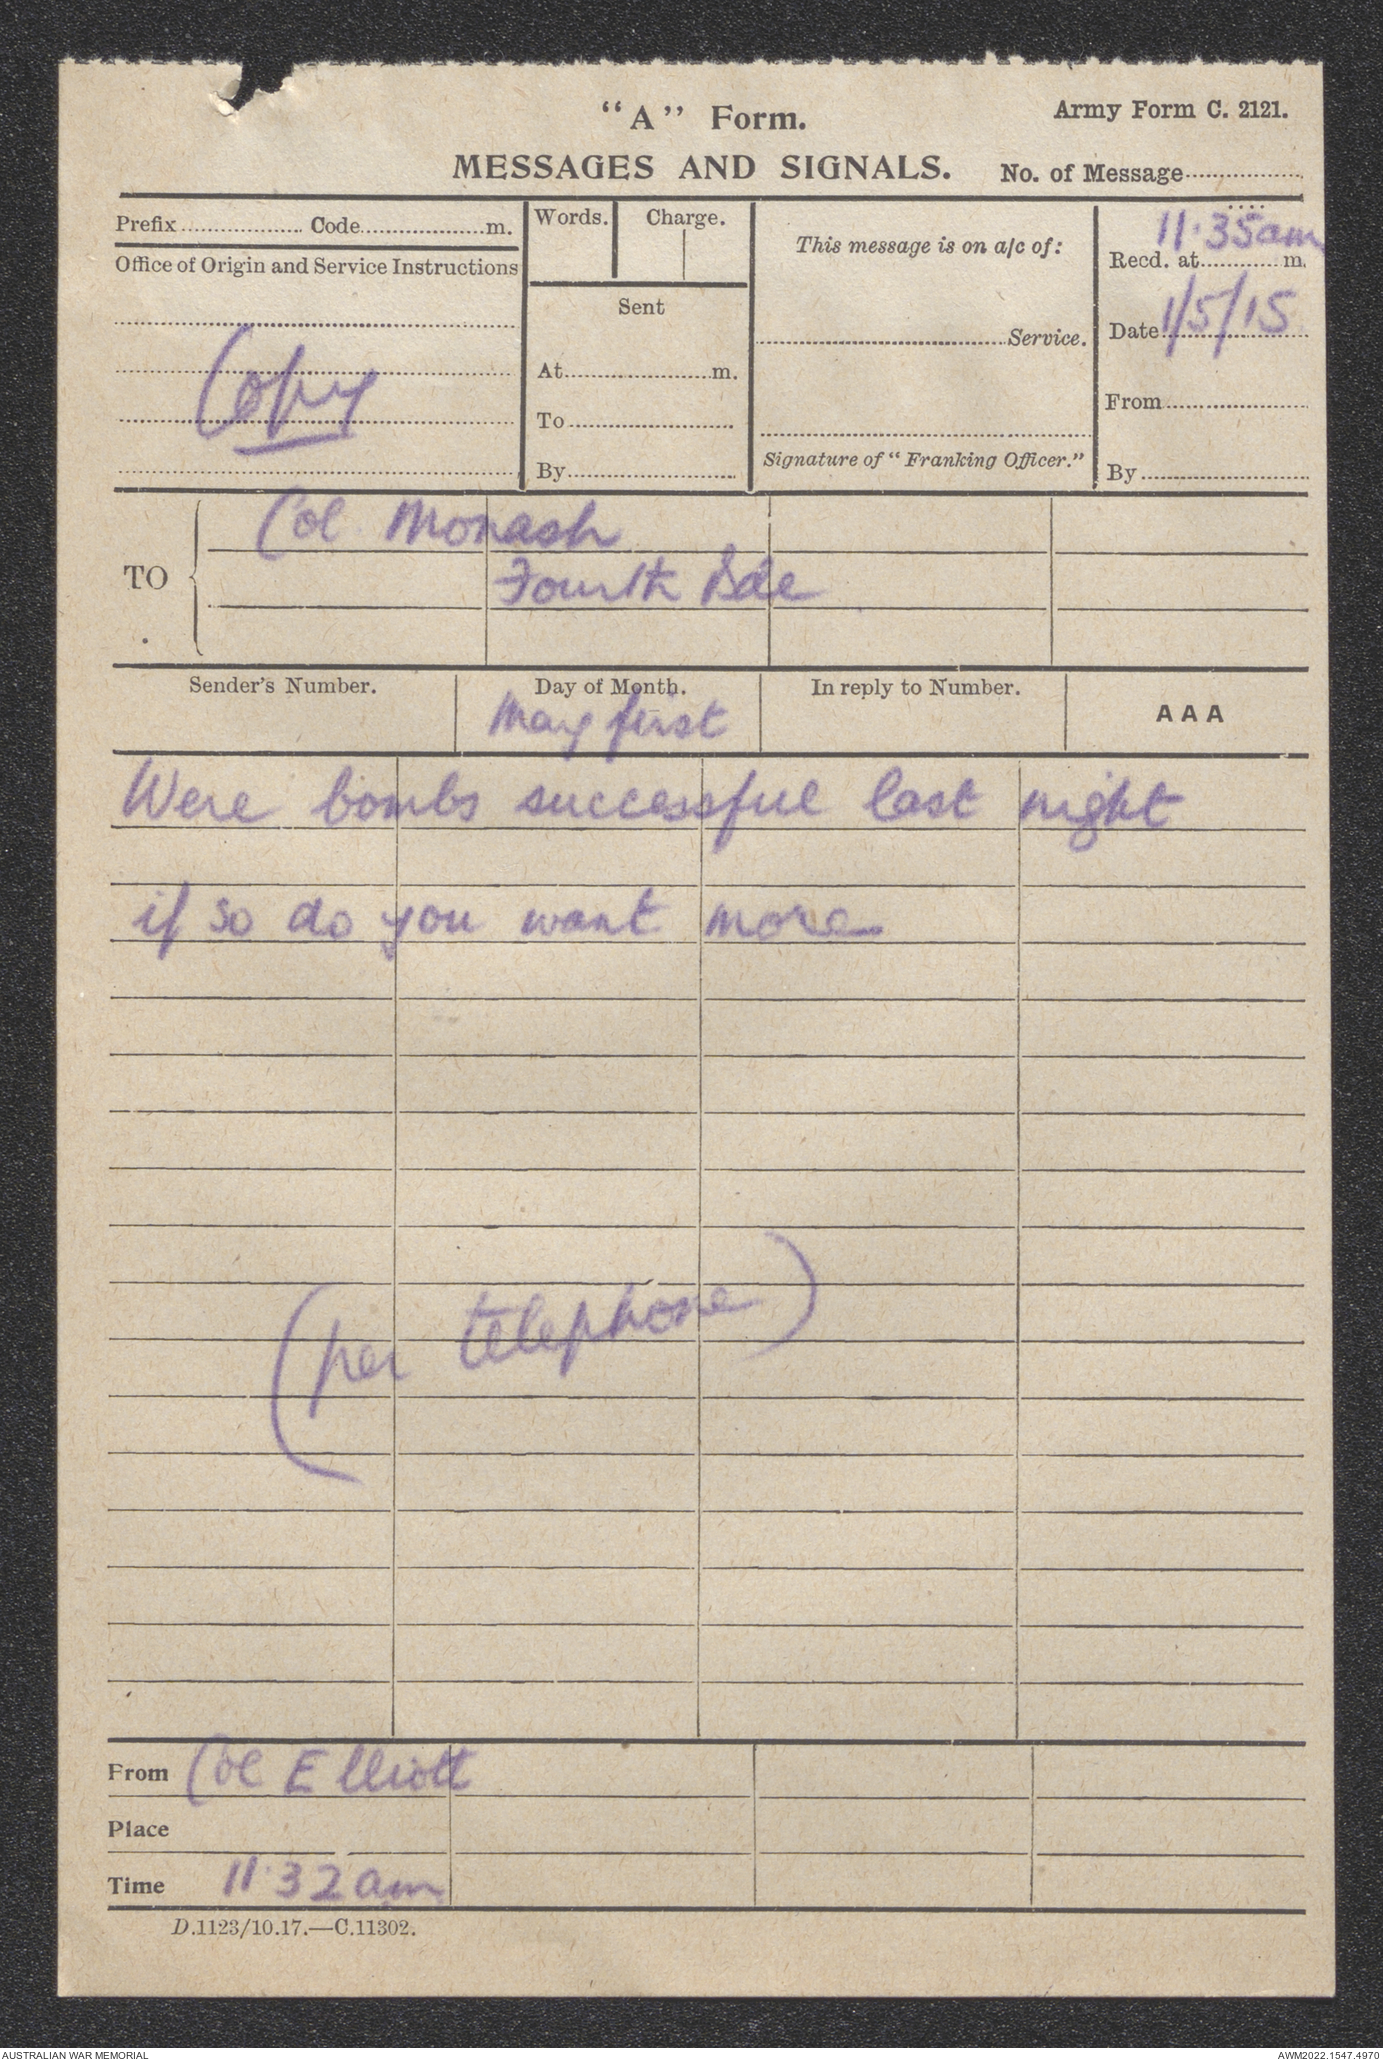 "A" Form.
Army Form C. 2121.
MESSAGES AND SIGNALS.
No. of Message
Prefix Code m.
Words. Charge.
This message is on a/c of:
11·35am
Recd. at m.
Office of Origin and Service Instructions
Sent
Service.
Date 1/5/15
Copy
At m.
To
From
By
Signature of "Franking Officer."
By
TO
Col. Monash
Fourth Bde
Sender's Number. Day of Month. In reply to Number.
May first
AAA
Were bombs successful last night
if so do you want more
(per telephone)
From Col Elliott
Place
Time 11·32am
D.1123/10.17.—C.11302.
AUSTRALIAN WAR MEMORIAL
AWM2022.1547.4970